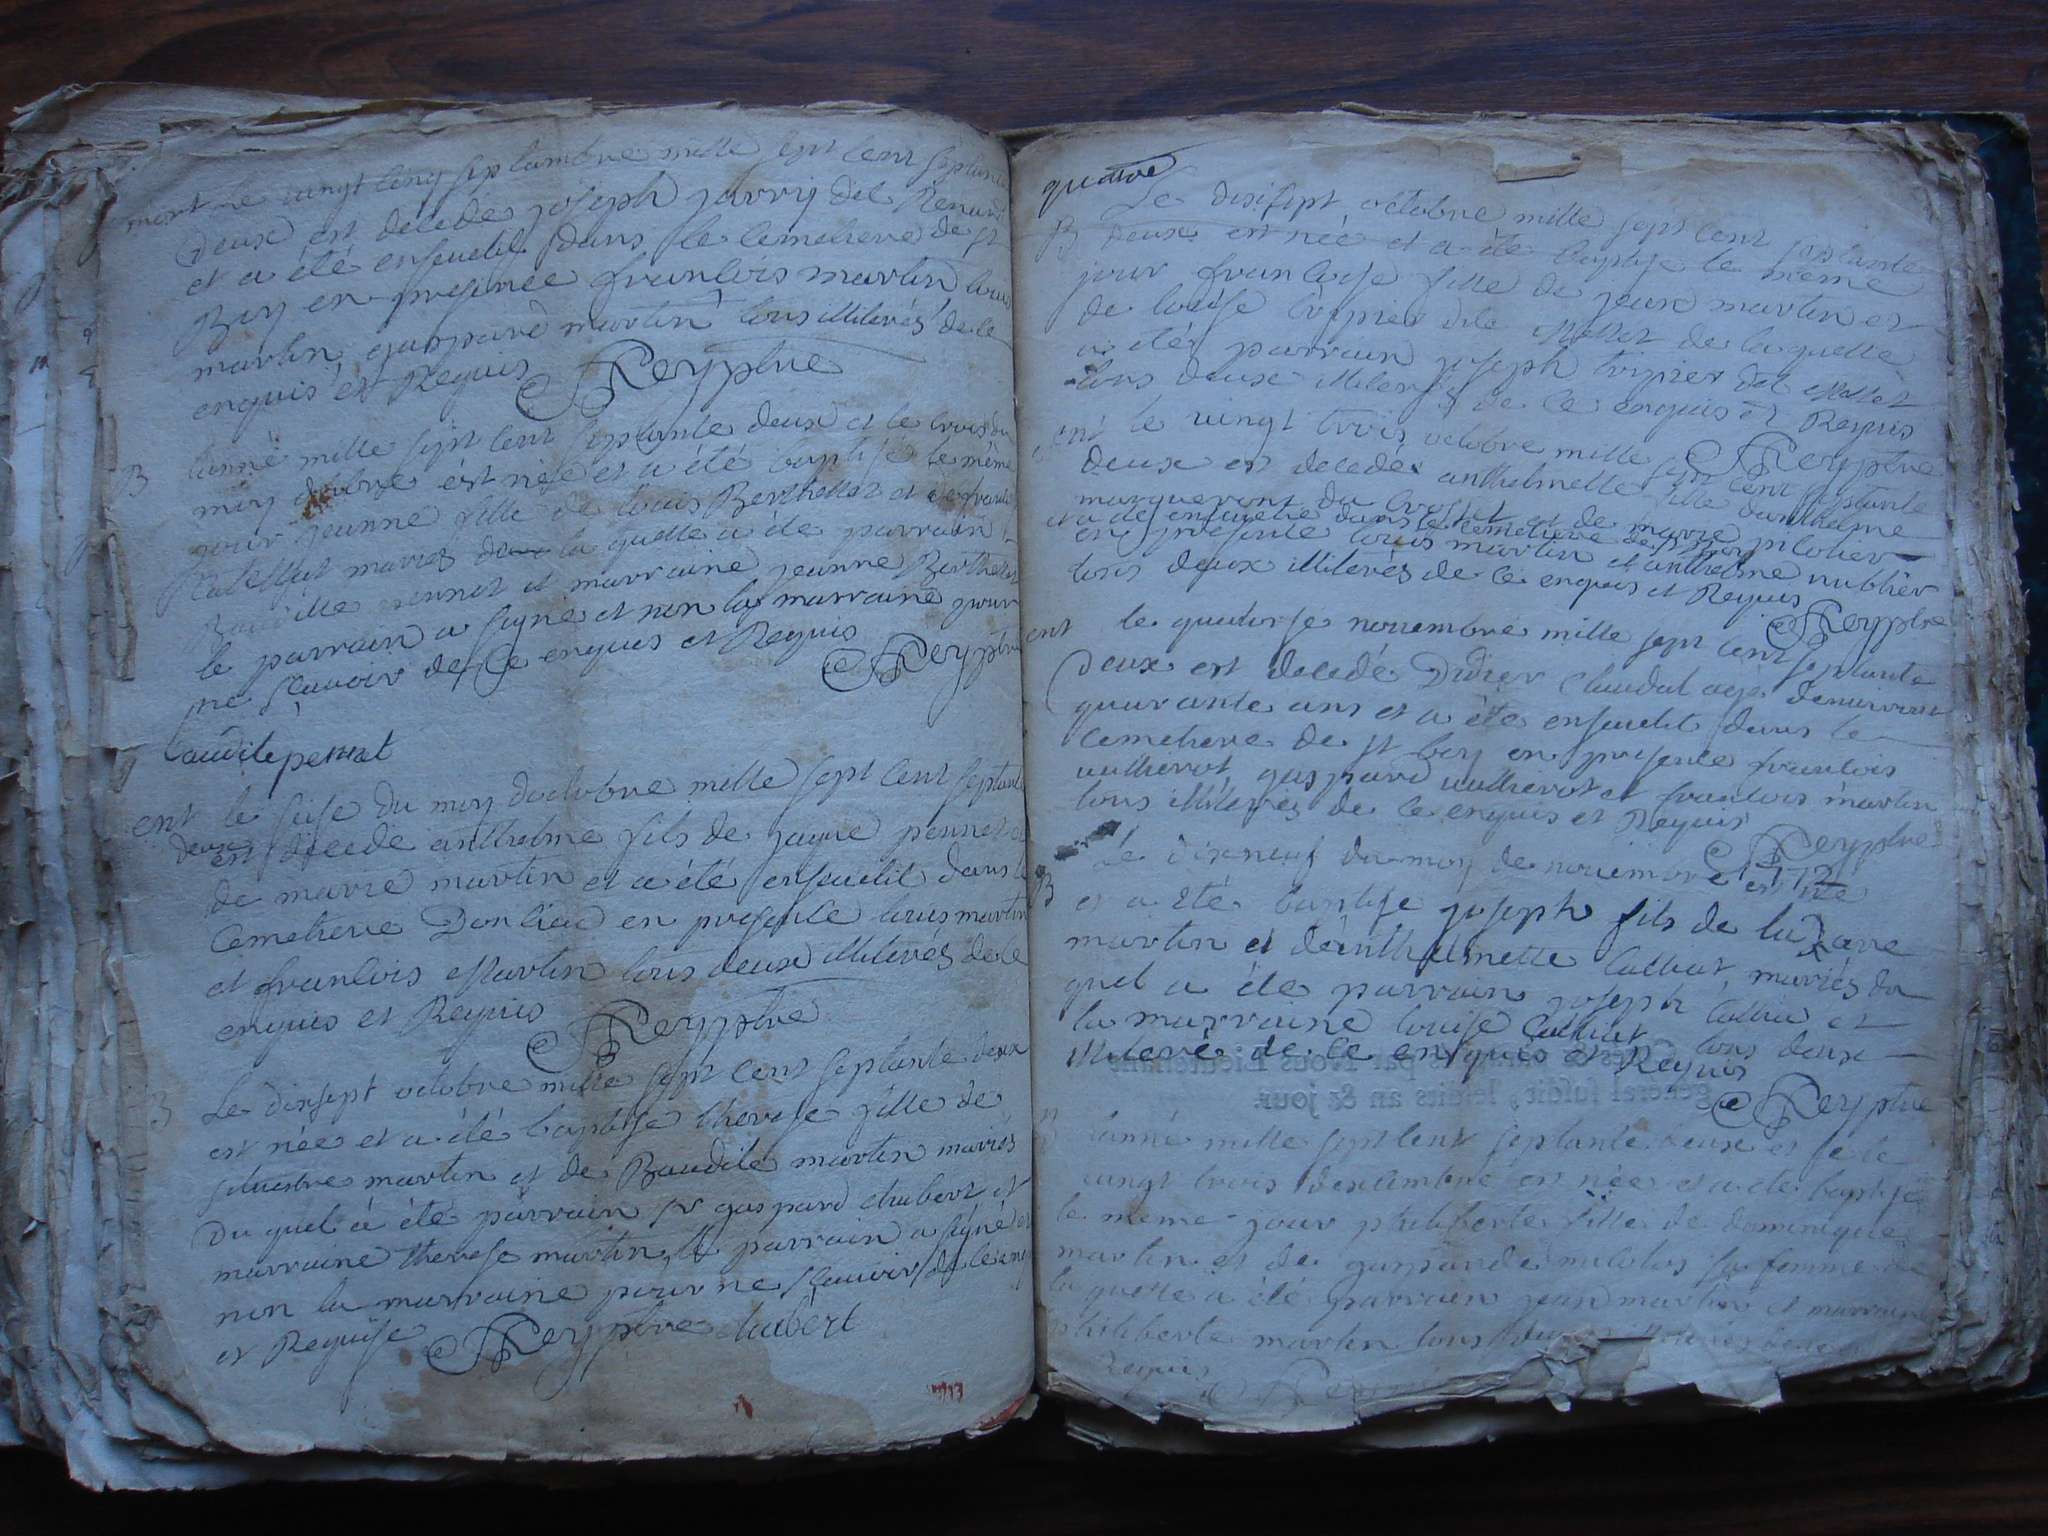 mort le vingt cinq septambre mille sept cent septante
deux est decede joseph jarrig del Renard
et a été enseuelit dans le cemetiere de st
Bey en presence francois martin louis
martin gaspard martin tous illiterés de ce
enquis et Requis
Rey ptre
B lanné mille sept cent septante deux et le trois du
moy doctobre est née et a été baptisé le même
jour jeanne fille de louis Berthellot et de
mariés la quelle a été parrain
et marraine jeanne Berthellot
le parrain a signé et non la marraine pour
ne scavoir de ce enques et Requis
Rey ptre
audite pernet
ent le seise du moy doctobre mille sept cent septante
deux
est decede anthelme fils de jaque pernet et
de marie martin et a été enseuelit dans le
cemetiere Donlieu en presence louis martin
et francois martin tous deux illiterés de ce
enquis et Requis
Rey ptre
B Le dixsept octobre mille sept cent septante deux
est née et a été baptisé therese fille de
siluestre martin et de Baudile martin mariés
du quel à été parrain sr gaspard chubert et
marraine therese martin le parrain a signé et
non la marraine pour ne scauoir de ce enq
et Requise
Rey ptre chubert
quatre
Le dixsept octobre mille sept cent septante
B deux est née et a été baptisé le même
jour francoise fille de jean martin et
de louise tripier dele mollet de laquelle
a été parrain joseph tripier del mollet
tous deux illiterés de ce enquis et Requis
Rey ptre
ent le vingt trois octobre mille sept cent septante
deux est decedé anthelmette fille danthelme
margueront du crosset et de marie pilotier
et a été enseuelie dans le cemetiere de st Bey
en presente louis martin et anthelme nublier
tous deux illiterés de ce enquis et Requis
Rey ptre
ent le quatorse nouembre mille sept cent septante
deux est decedé Didier claudat agé denuiron
quarante ans et a été enseuelit dans le
cemetiere de st bey en presente francois
uullierot gaspard uullierot et francois martin
tous illiterés de ce enquis et Requis
Rey ptre
Le dixneuf du moy de nouimbre 1772 est née
B et a été baptise joseph fils de lazare
martin et deanthelmette calliat mariés du
quel a été parrain joseph callia et
la marraine louise calliat tous deux
illiteré de ce enquis et Requis
Rey ptre
par Nous Lieutenant
général susdit, lesdits an & jour.
B lanné mille sept cent septante deux et le
uingt trois dexcembre est née et a été baptisé
le même jour philiberte fille de dominique
martin et de gasparde milolus sa femme de
la quelle a été parrain jean martin et marraine
philiberte martin tous deux
Requis